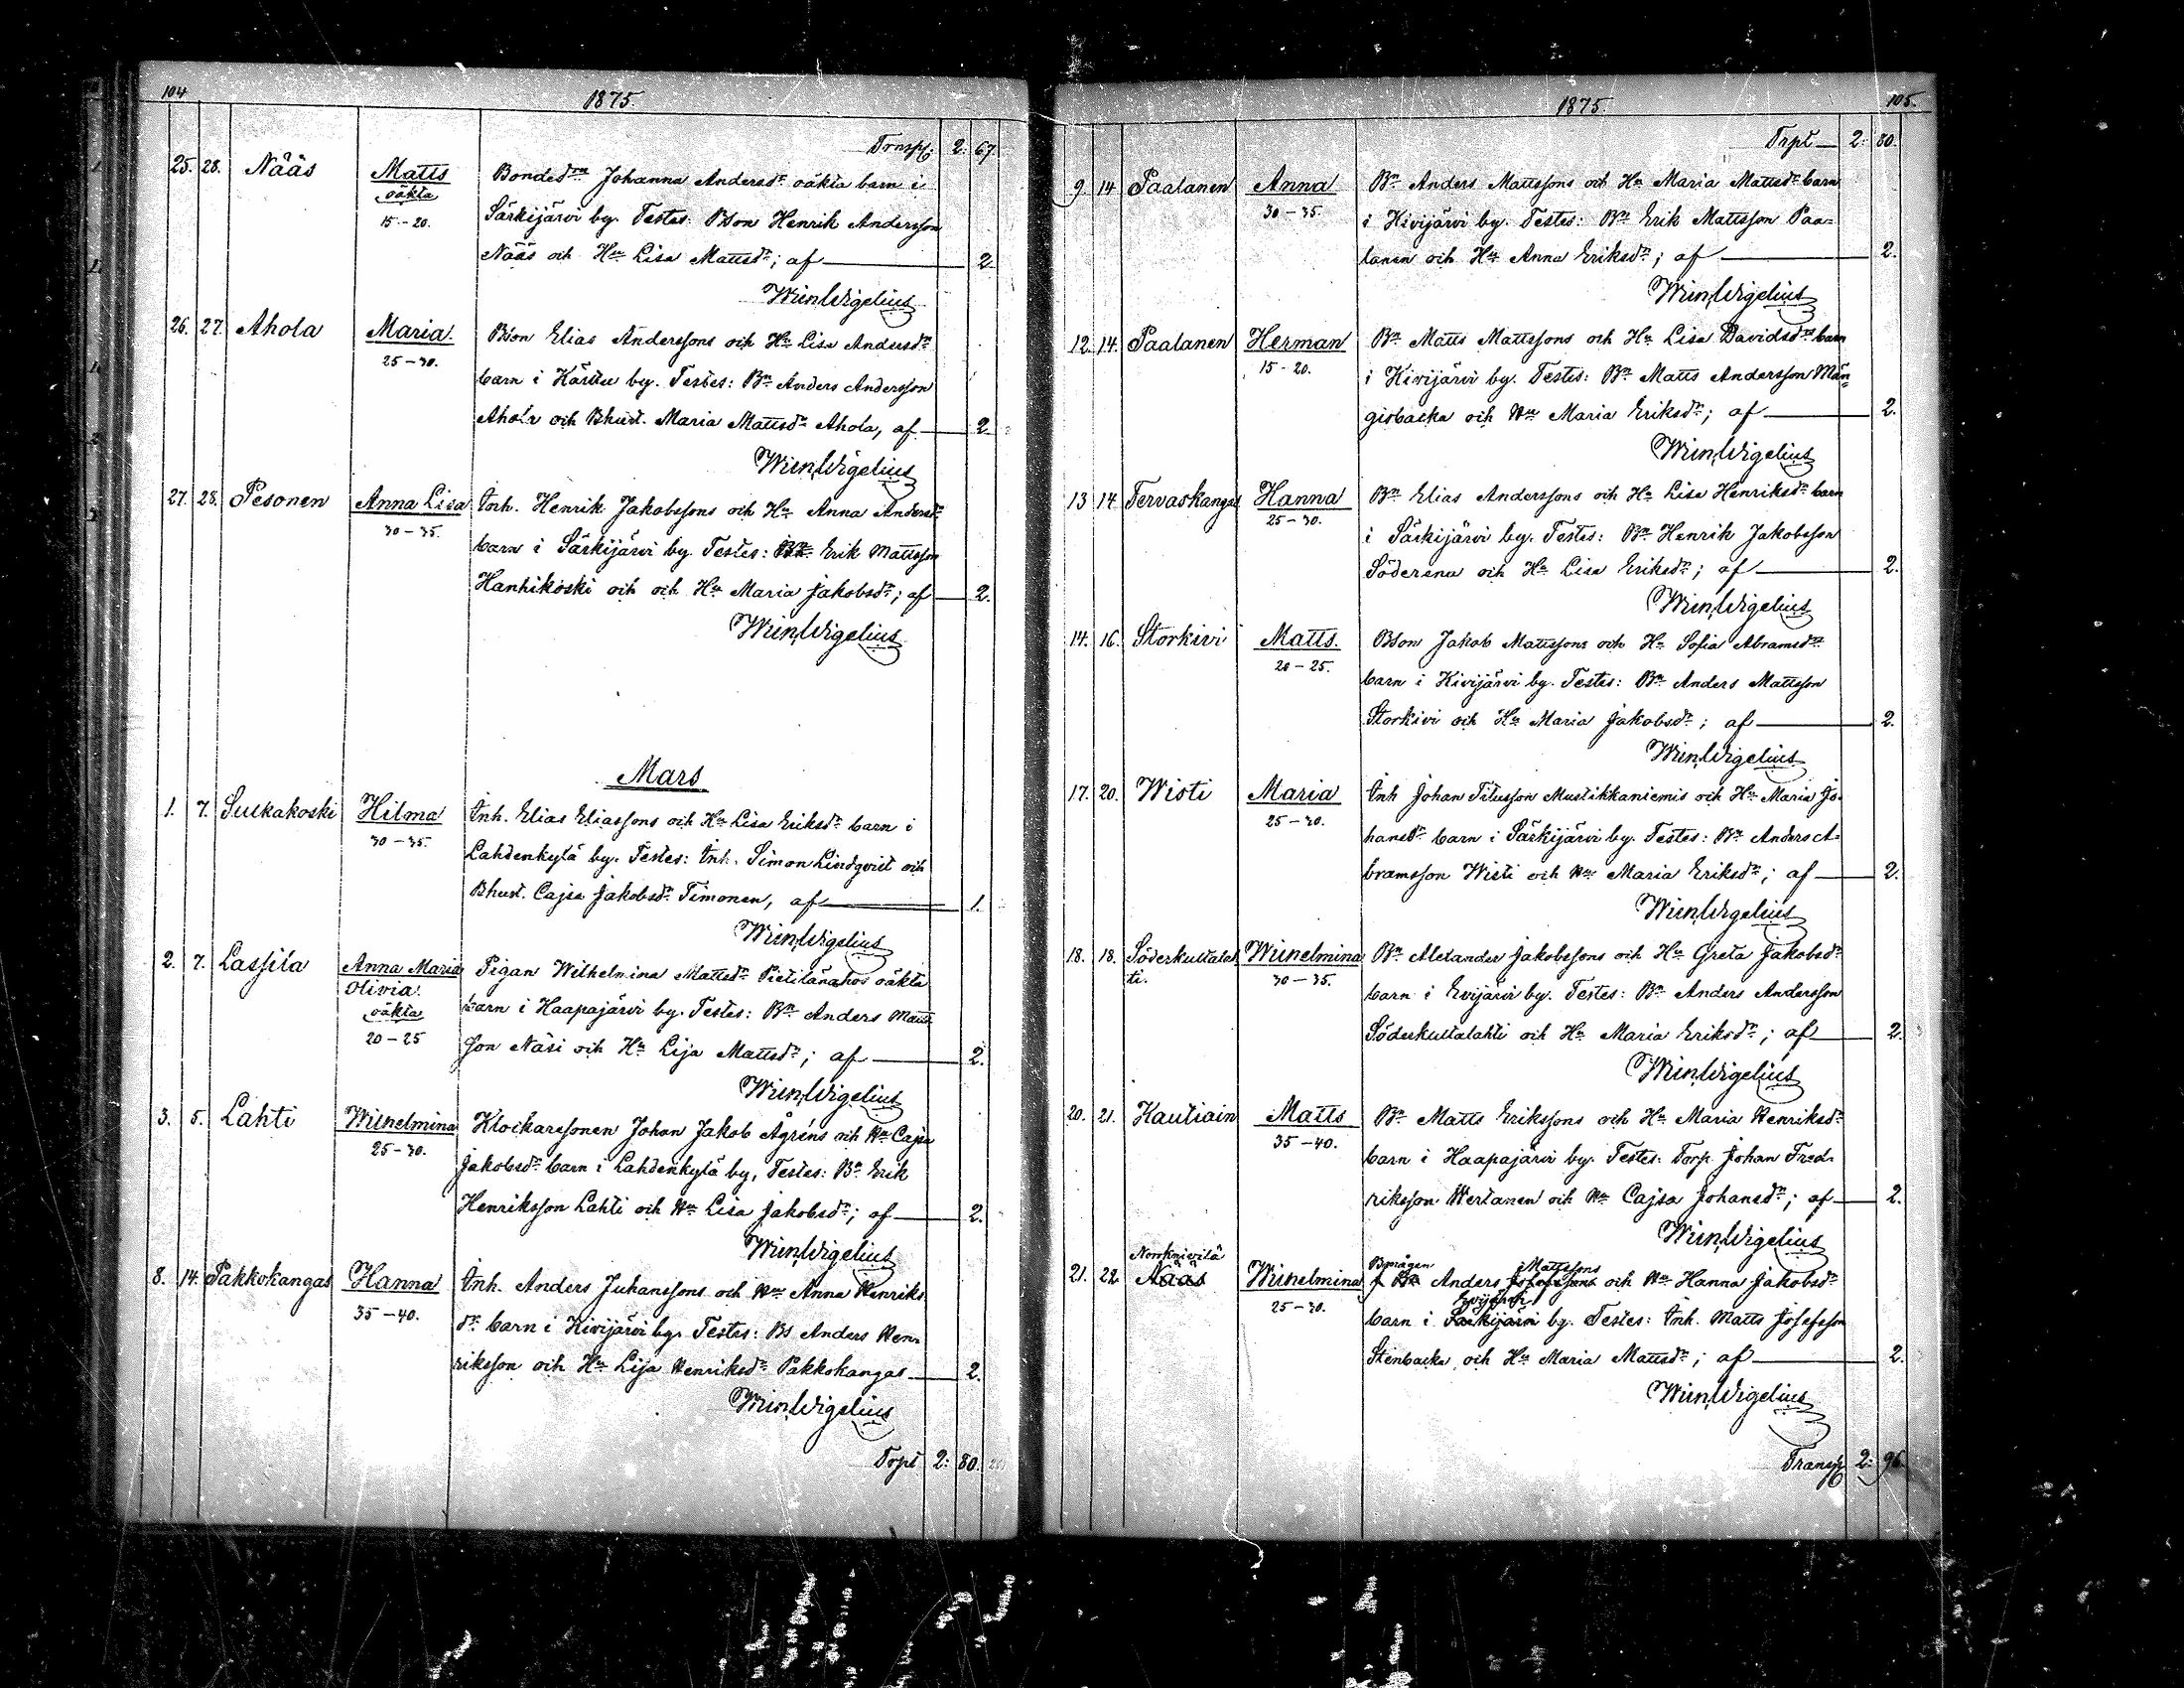 104
1875.
Trnsp. 2: 67.
25. 28. Nääs Matts Bondedrn Johanna Andersdr oäkta barn i
oäkta
15-20. Särkijärvi by. Testes: Bson Henrik Andersson
Nääs och Hu Lisa Mattsdr; af 2.
Wigelius
26. 27. Ahola Maria. Bson Elias Anderssons och Hu Lisa Andersdr
25-30. barn i by. Testes: Bn Anders Andersson
Ahola och Bhust. Maria Mattsdr Ahola, af 2.
Wigelius
27. 28. Pesonen Anna Lisa Inh. Henrik Jakobssons och Hu Anna Andersdr
30-35. barn i Särkijärvi by. Testes: Bn Erik Mattsson
Hanhikoski och och Hu Maria Jakobsdr; af 2.
Wigelius
Mars
1. 7. Sulkakoski Hilma Inh. Elias Eliassons och Hu Lisa Eriksdr barn i
30-35. Lahdenkylä by. Testes: Inh. Simon Lindqvist och
Bhust. Cajsa Jakobsdr Timonen, af 1.
Wigelius
2. 7. Lassila Anna Maria Pigan Wilhelmina Mattsdr Pietilänahos oäkta
Olivia.
oäkta barn i Haapajärvi by. Testes: Bn Anders Matts
20-25 son Näsi och Hu Lisa Mattsdr; af 2.
Wigelius
3. 5. Lahti Wilhelmina Klockaressonen Johan Jakob Ågréns och Hu Cajsa
25-30. Jakobsdr barn i Lahdenkylä by, Testes: Bn Erik
Henriksson Lahti och Hu Lisa Jakobsdr; af 2.
Wigelius
8. 14. Pakkokangas Hanna Inh. Anders Juhanssons och Hu Anna Henriks
35-40. dr barn i Kivijärvi by. Testes: Bs Anders Hen-
riksson och Hu Lisa Henriksdr Pakkokangas 2.
Wigelius
Trpt 2: 80.
1875. 105.
Trpt 2: 80.
9. 14 Paalanen Anna Bn Anders Mattssons och Hu Maria Mattsdr barn
30-35. i Kivijärvi by. Testes: Bn Erik Mattsson Paa-
lanen och Hu Anna Eriksdr; af 2.
Wigelius
12. 14. Paalanen Herman Bn Matts Mattssons och Hu Lisa Davidsdr barn
15-20. i Kivijärvi by. Testes: Bn Matts Andersson Män-
gisbacka och Hu Maria Eriksdr; af 2.
Wigelius
13 14 Tervaskangas Hanna Bn Elias Anderssons och Hu Lisa Henriksdr barn
25-30. i Särkijärvi by. Testes: Bn Henrik Jakobsson
Söderena och Hu Lisa Eriksdr; af 2.
Wigelius
14. 16. Storkivi Matts. Bson Jakob Mattssons och Hu Sofia Abramsdr
20-25. barn i Kivijärvi by. Testes: Bn Anders Mattsson
Storkivi och Hu Maria Jakobsdr; af 2.
Wigelius
17. 20. Wisti Maria Inh Johan Titusson Mustikkaniemis och Hu Maria Jo-
25-30. hansdr barn i Särkijärvi by. Testes: Bn Anders A-
bramsson Wisti och Hu Maria Eriksdr; af 2.
Wigelius
18. 18. Söderkultalah Wilhelmina Bn Alexander Jakobssons och Hu Greta Jakobsdr
ti. 30-35. barn i Evijärvi by. Testes: Bn Anders Andersson
Söderkultalahti och Hu Maria Eriksdr; af 2.
Wigelius
20. 21. Kautiain Matts Bn Matts Erikssons och Hu Maria Henriksdr
35-40. barn i Haapajärvi by. Testes: Torp. Johan Fred-
riksson Wertanen och Hu Cajsa Johansdr; af 2.
Wigelius
Norrkniivilä Bmågen Mattssons
21. 22. Nääs Wilhelmina f Bn Anders Josefssons och Hu Hanna Jakobsdr
Evijärvi
25-30. barn i Särkijärvi by. Testes: Inh. Matts Josefsson
Stenbacka och Hu Maria Mattsdr; af 2.
Wigelius
Transp 2: 96.